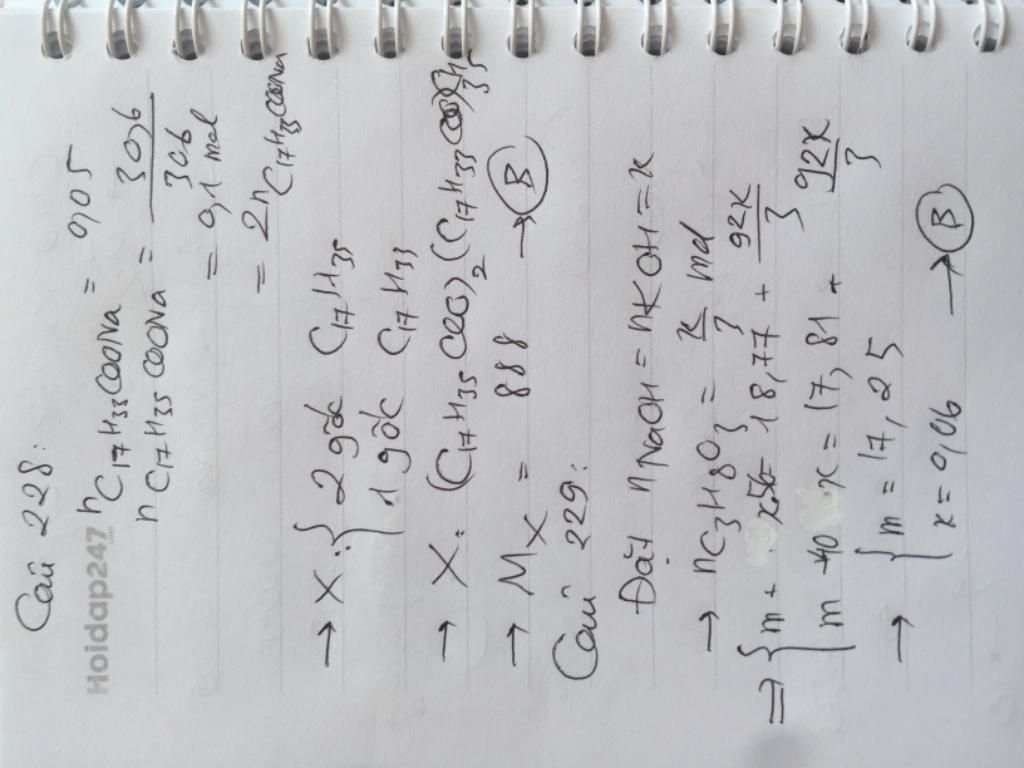 Câu 228:
Hoidap247
.com
nC17H33COONa = 0,05
nC17H35COONa = 30,6/306
= 0,1 mol
= 2nC17H33COONa
→ X: { 2 gốc C17H35
1 gốc C17H33
→ X: (C17H35COO)2(C17H33COO)C3H5
→ MX = 888 → B
Câu 229:
Đặt nNaOH = nKOH = x
→ nC3H8O3 = x/3 mol
⇒ { m + x.56 = 18,77 + 92x/3
m + 40x = 17,81 + 92x/3
→ { m = 17,25
x = 0,06 → B